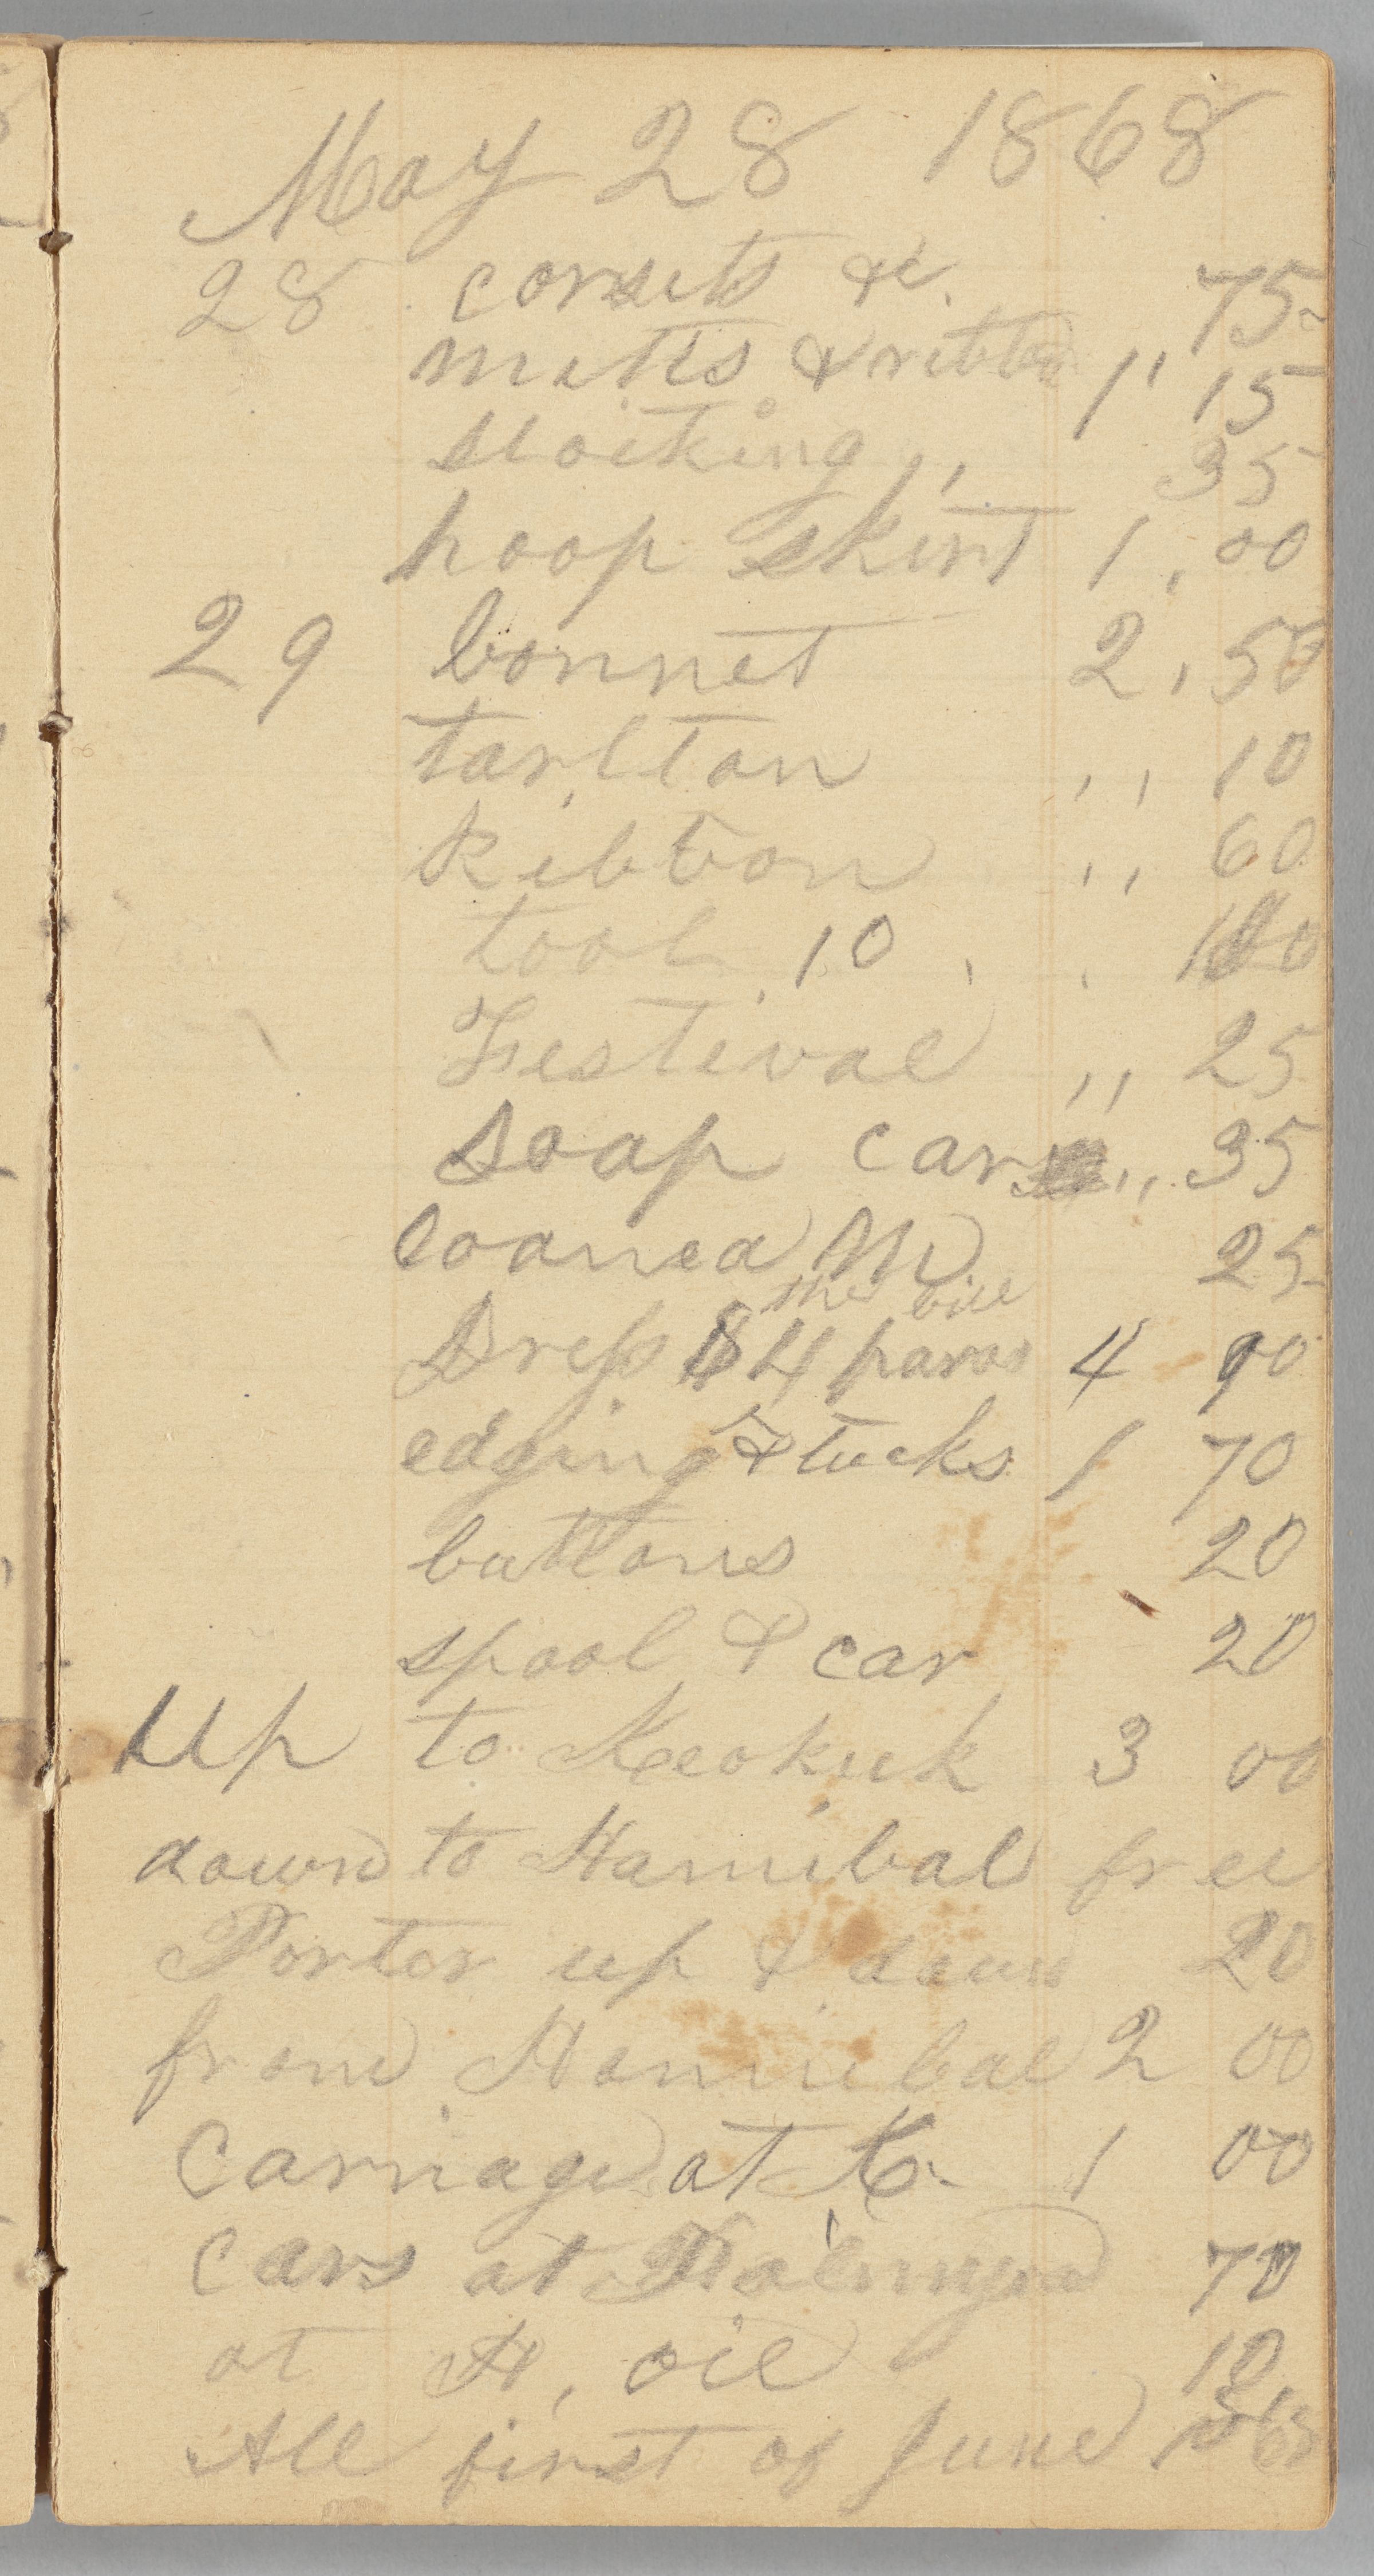 May 28 1868
28 corsets &c. 75
mitts & ribbon 1" 15
stocking ,, 35
hoop skirt 1,00
29 bonnet 2,50
tarlton ,, 10
Ribbon ,, 60
tool 10
Festival ,, 25
Soap car ,, 35
loaned M 25
the bill
Dress $4 paras 4 90
edging & tucks 1 70
buttons 20
spool & car 20
Up to Keokuk 3 00
down to Hanibal free
Porter up & down 20
from Hannibal 2 00
Carriage at K. 1 00
Cars at Palmyra 70
at H, oil 10
All first of June